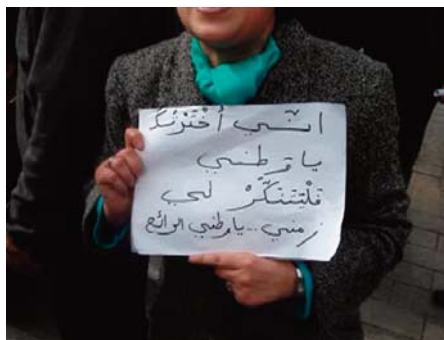 إنّي أخْتَرْتُكَ
يا وطني
فَلْيَتَنَكَّرْ لي
زمني .. يا وطني الرائع